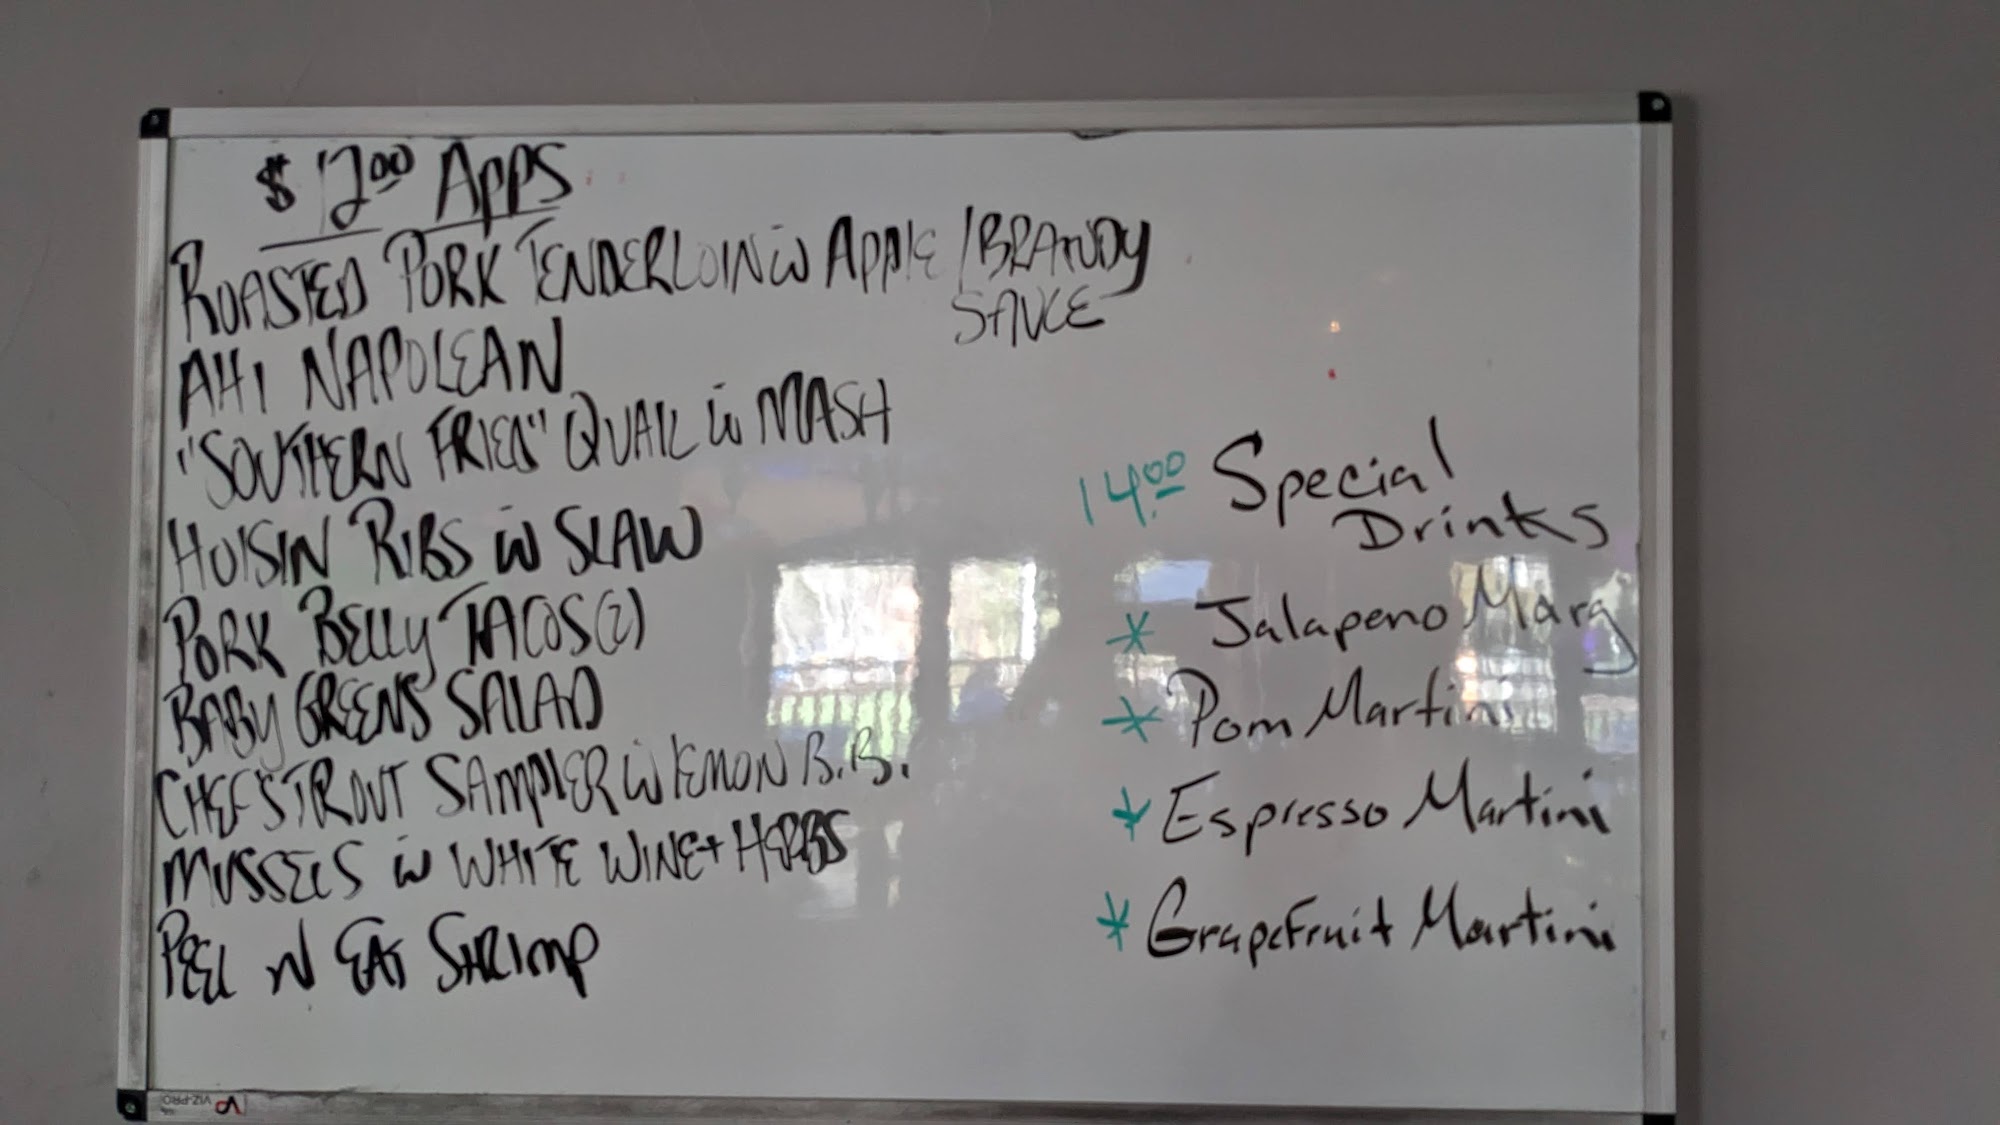 $ 12.00 APPS
ROASTED PORK TENDERLOIN W APPLE / BRANDY
SAUCE
AHI NAPOLEAN
"SOUTHERN FRIED" QUAIL W MASH
HOISIN RIBS W SLAW
PORK BELLY TACOS (2)
BABY GREENS SALAD
CHEF'S TROUT SAMPLER W LEMON B.B.
MUSSELS W WHITE WINE + HERBS
PEEL N EAT SHRIMP
14.00 Special
Drinks
* Jalapeno Marg
* Pom Martini
* Espresso Martini
* Grapefruit Martini
VIZ-PRO